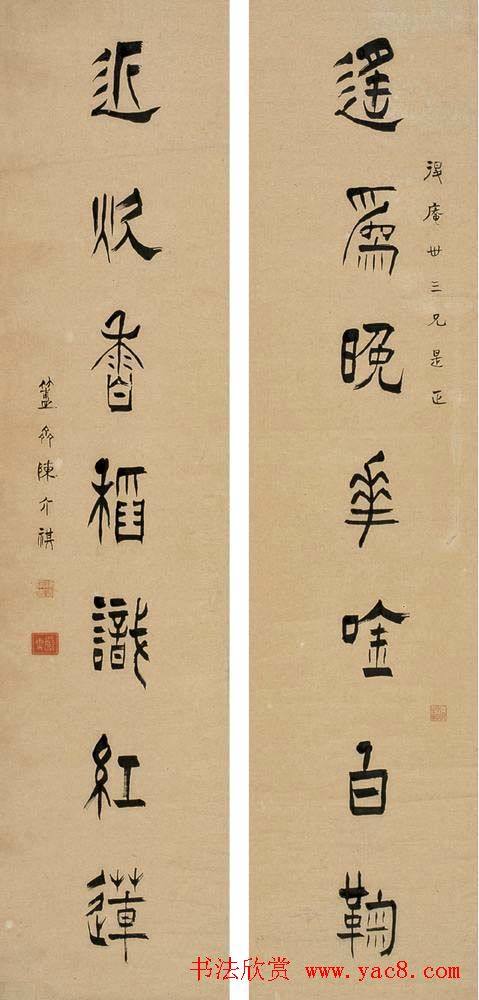 遙爲晚華唫白鞠
庵三兄是正
近炊香稻識紅蓮
簠齋陳介祺
书法欣赏 www.yac8.com